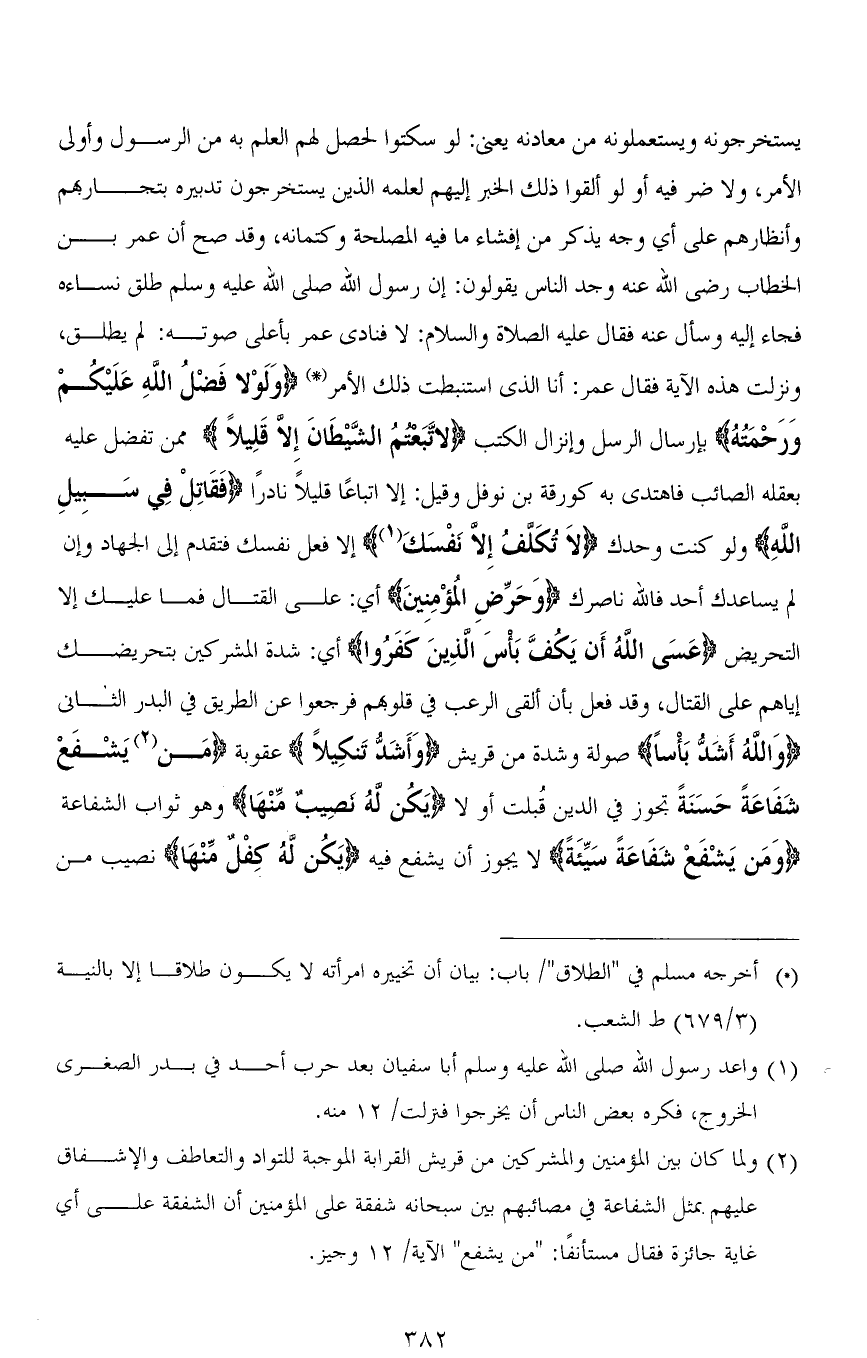 يستخرجونه ويستعملونه من معادنه يعنى: لو سكتوا لحصل لهم العلم به من الرسول وأولى
الأمر، ولا ضر فيه أو لو ألقوا ذلك الخبر إليهم لعلمه الذين يستخرجون تدبيره بتجاربهم
وأنظارهم على أي وجه يذكر من إفشاء ما فيه المصلحة وكتمانه، وقد صح أن عمر بن
الخطاب رضى الله عنه وجد الناس يقولون: إن رسول الله صلى الله عليه وسلم طلق نساءه
فجاء إليه وسأل عنه فقال عليه الصلاة والسلام: لا فنادى عمر بأعلى صوته: لم يطلق،
ونزلت هذه الآية فقال عمر: أنا الذى استنبطت ذلك الأمر(*) ﴿وَلَوْلا فَضْلُ اللَّهِ عَلَيْكُمْ
وَرَحْمَتُهُ﴾ بإرسال الرسل وإنزال الكتب ﴿لاتَّبَعْتُمُ الشَّيْطَانَ إِلاَّ قَلِيلاً﴾ ممن تفضل عليه
بعقله الصائب فاهتدى به كورقة بن نوفل وقيل: إلا اتباعًا قليلاً نادرًا ﴿فَقَاتِلْ فِي سَبِيلِ
اللَّهِ﴾ ولو كنت وحدك ﴿لاَ تُكَلَّفُ إِلاَّ نَفْسَكَ(١)﴾ إلا فعل نفسك فتقدم إلى الجهاد وإن
لم يساعدك أحد فالله ناصرك ﴿وَحَرِّضِ الْمُؤْمِنِينَ﴾ أي: على القتال فما عليك إلا
التحريض ﴿عَسَى اللَّهُ أَن يَكُفَّ بَأْسَ الَّذِينَ كَفَرُوا﴾ أي: شدة المشركين بتحريضك
إياهم على القتال، وقد فعل بأن ألقى الرعب في قلوبهم فرجعوا عن الطريق في البدر الثانى
﴿وَاللَّهُ أَشَدُّ بَأْساً﴾ صولة وشدة من قريش ﴿وَأَشَدُّ تَنكِيلاً﴾ عقوبة ﴿مَن(٢) يَشْفَعْ
شَفَاعَةً حَسَنَةً تجوز في الدين قُبلت أو لا ﴿يَكُن لَّهُ نَصِيبٌ مِّنْهَا﴾ وهو ثواب الشفاعة
﴿وَمَن يَشْفَعْ شَفَاعَةً سَيِّئَةً﴾ لا يجوز أن يشفع فيه ﴿يَكُن لَّهُ كِفْلٌ مِّنْهَا﴾ نصيب من
(*) أخرجه مسلم في "الطلاق"/ باب: بيان أن تخييره امرأته لا يكون طلاقا إلا بالنية
(٦٧٩/٣) ط الشعب.
(١) واعد رسول الله صلى الله عليه وسلم أبا سفيان بعد حرب أحد في بدر الصغرى
الخروج، فكره بعض الناس أن يخرجوا فنزلت/ ١٢ منه.
(٢) ولما كان بين المؤمنين والمشركين من قريش القرابة الموجبة للتواد والتعاطف والإشفاق
عليهم بمثل الشفاعة في مصائبهم بين سبحانه شفقة على المؤمنين أن الشفقة على أي
غاية جائزة فقال مستأنفًا: "من يشفع" الآية/ ١٢ وجيز.
٣٨٢